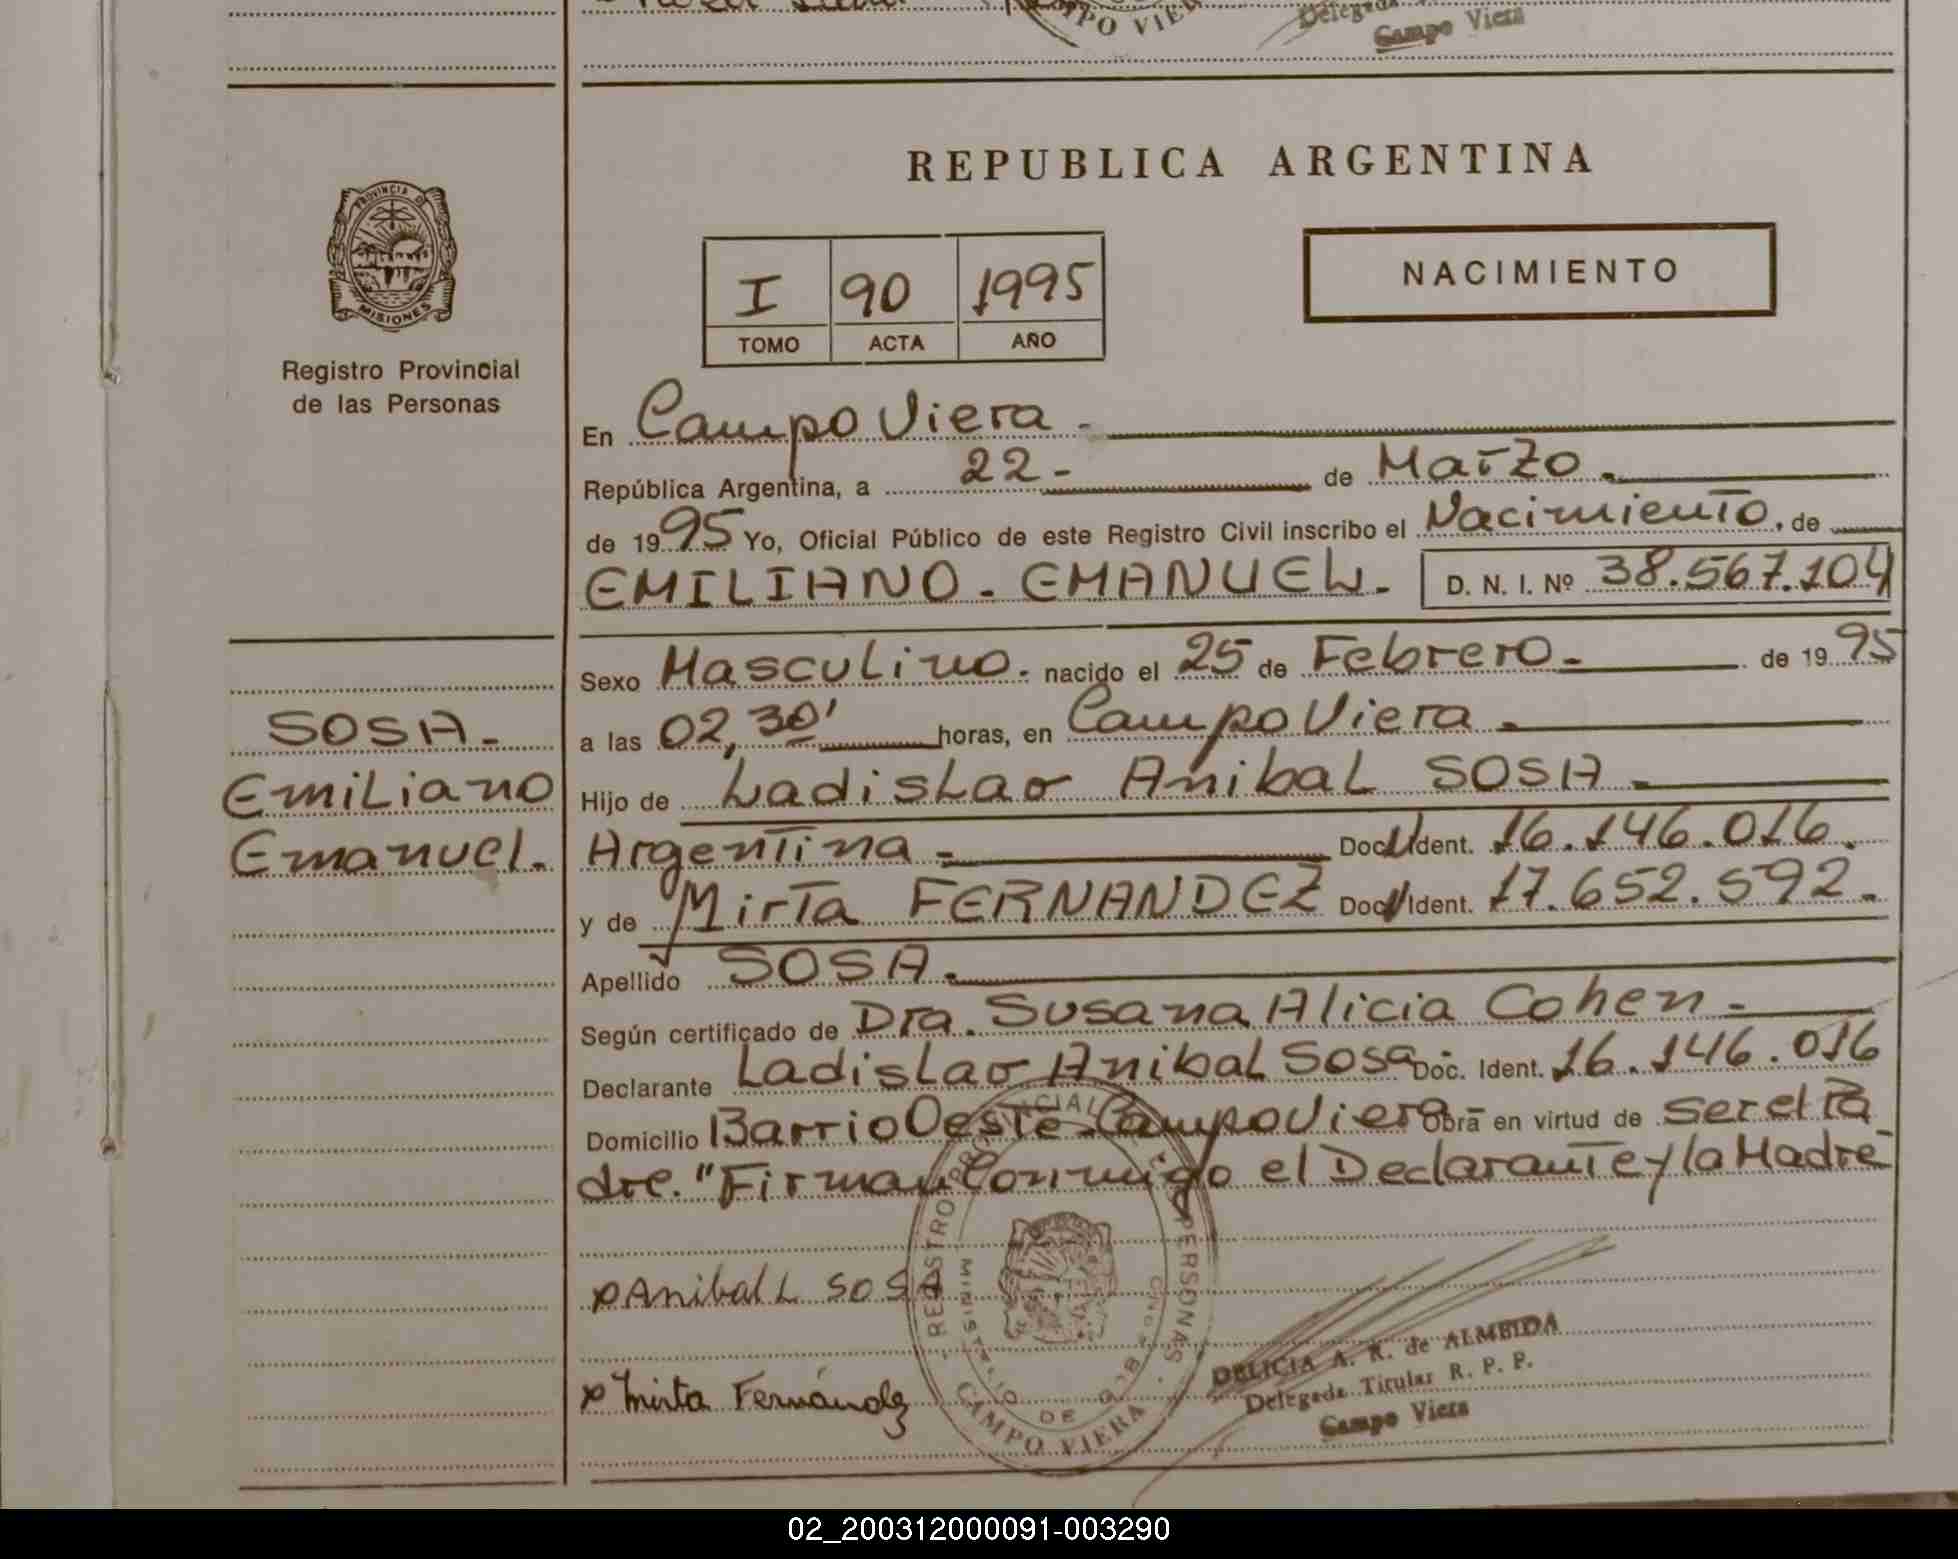 CAMPO VIERA
Delegada
Campo Viera
REPUBLICA ARGENTINA
PROVINCIA DE
MISIONES
Registro Provincial
de las Personas
I 90 1995
TOMO ACTA AÑO
NACIMIENTO
En Campo Viera -
República Argentina, a 22 - de Marzo.
de 1995 Yo, Oficial Público de este Registro Civil inscribo el Nacimiento, de
EMILIANO - EMANUEL. D. N. I. Nº 38.567.104
Sexo Masculino. nacido el 25 de Febrero - de 1995
a las 02,30' horas, en Campo Viera -
Hijo de Ladislao Anibal SOSA -
Argentina - Doc. Ident. 16.146.016.
y de Mirta FERNANDEZ Doc. Ident. 17.652.592.
Apellido SOSA.
Según certificado de Dra. Susana Alicia Cohen -
Declarante Ladislao Anibal Sosa Doc. Ident. 16.146.016
Domicilio Barrio Oeste - Campo Viera Obra en virtud de ser el Pa
dre. "Firman Conmigo el Declarante y la Madre -
SOSA -
Emiliano
Emanuel.
Anibal L SOSA
Mirta Fernández
REGISTRO PROVINCIAL DE PERSONAS
MINISTERIO DE GOBIERNO
CAMPO VIERA
DELICIA A. R. de ALMEIDA
Delegada Titular R. P. P.
Campo Viera
02_200312000091-003290